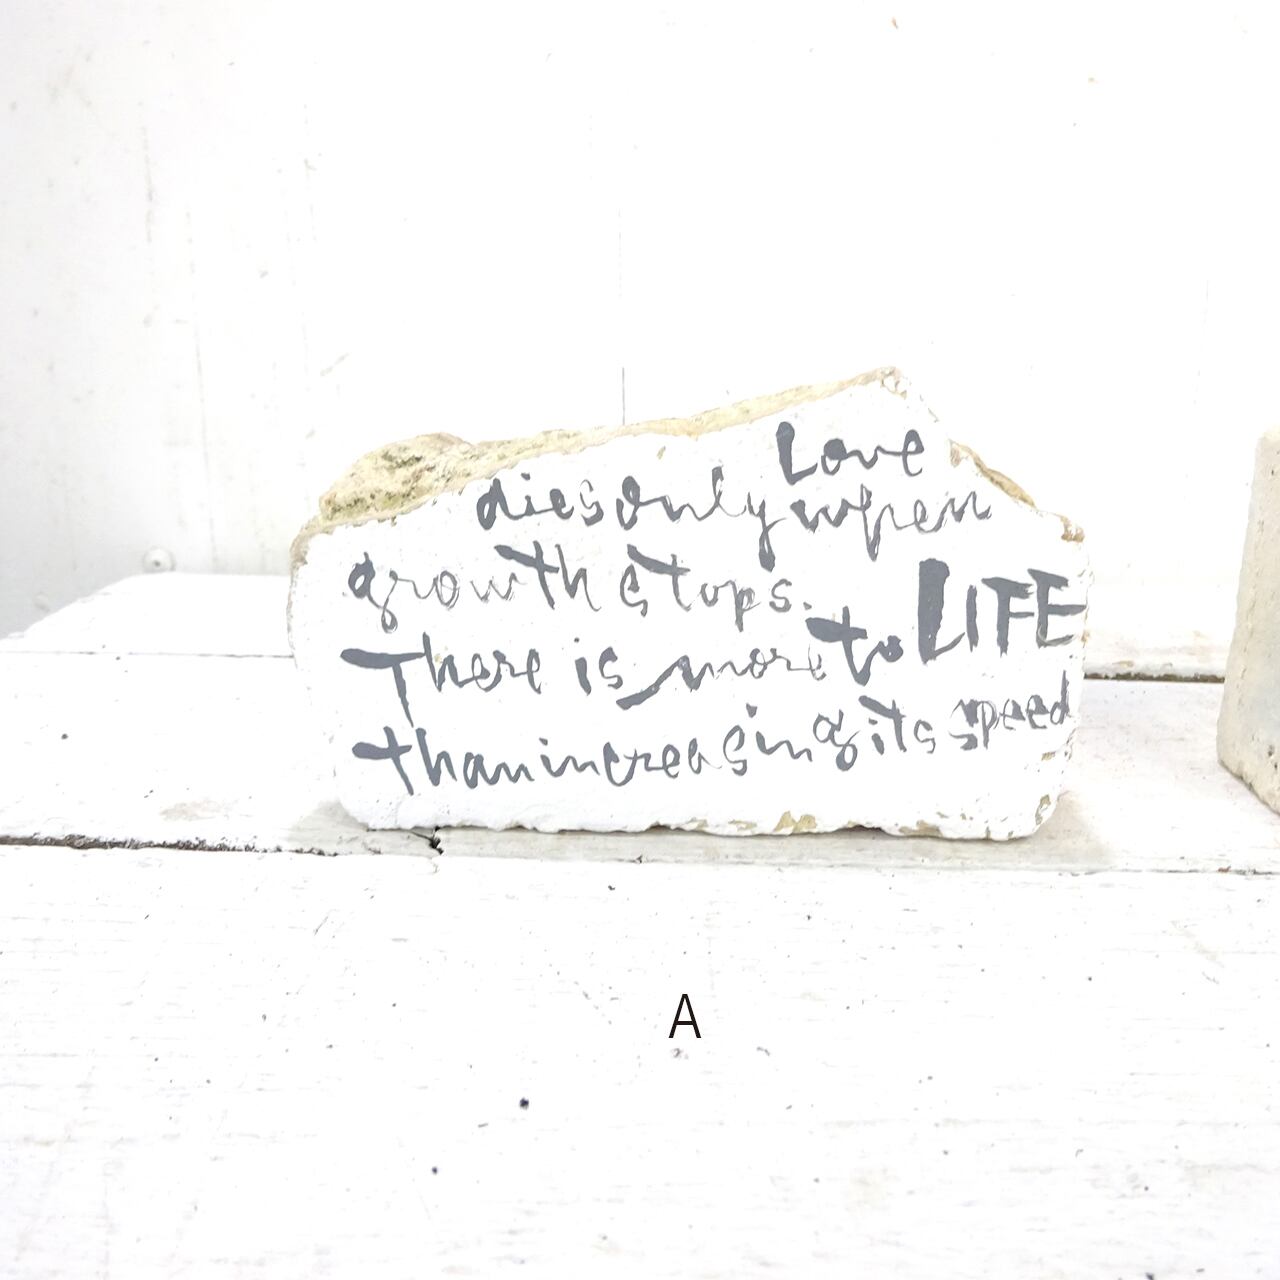 Love
dies only when
growth stops.
There is more to LIFE
than increasing its speed
A